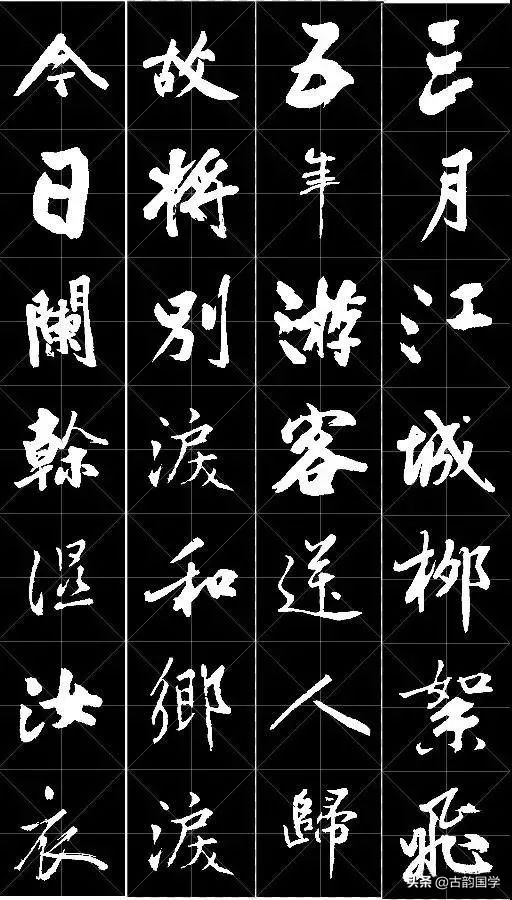 三月江城柳絮飛
五年游客送人歸
故將別淚和鄉淚
今日闌幹濕汝衣
头条 @古韵国学